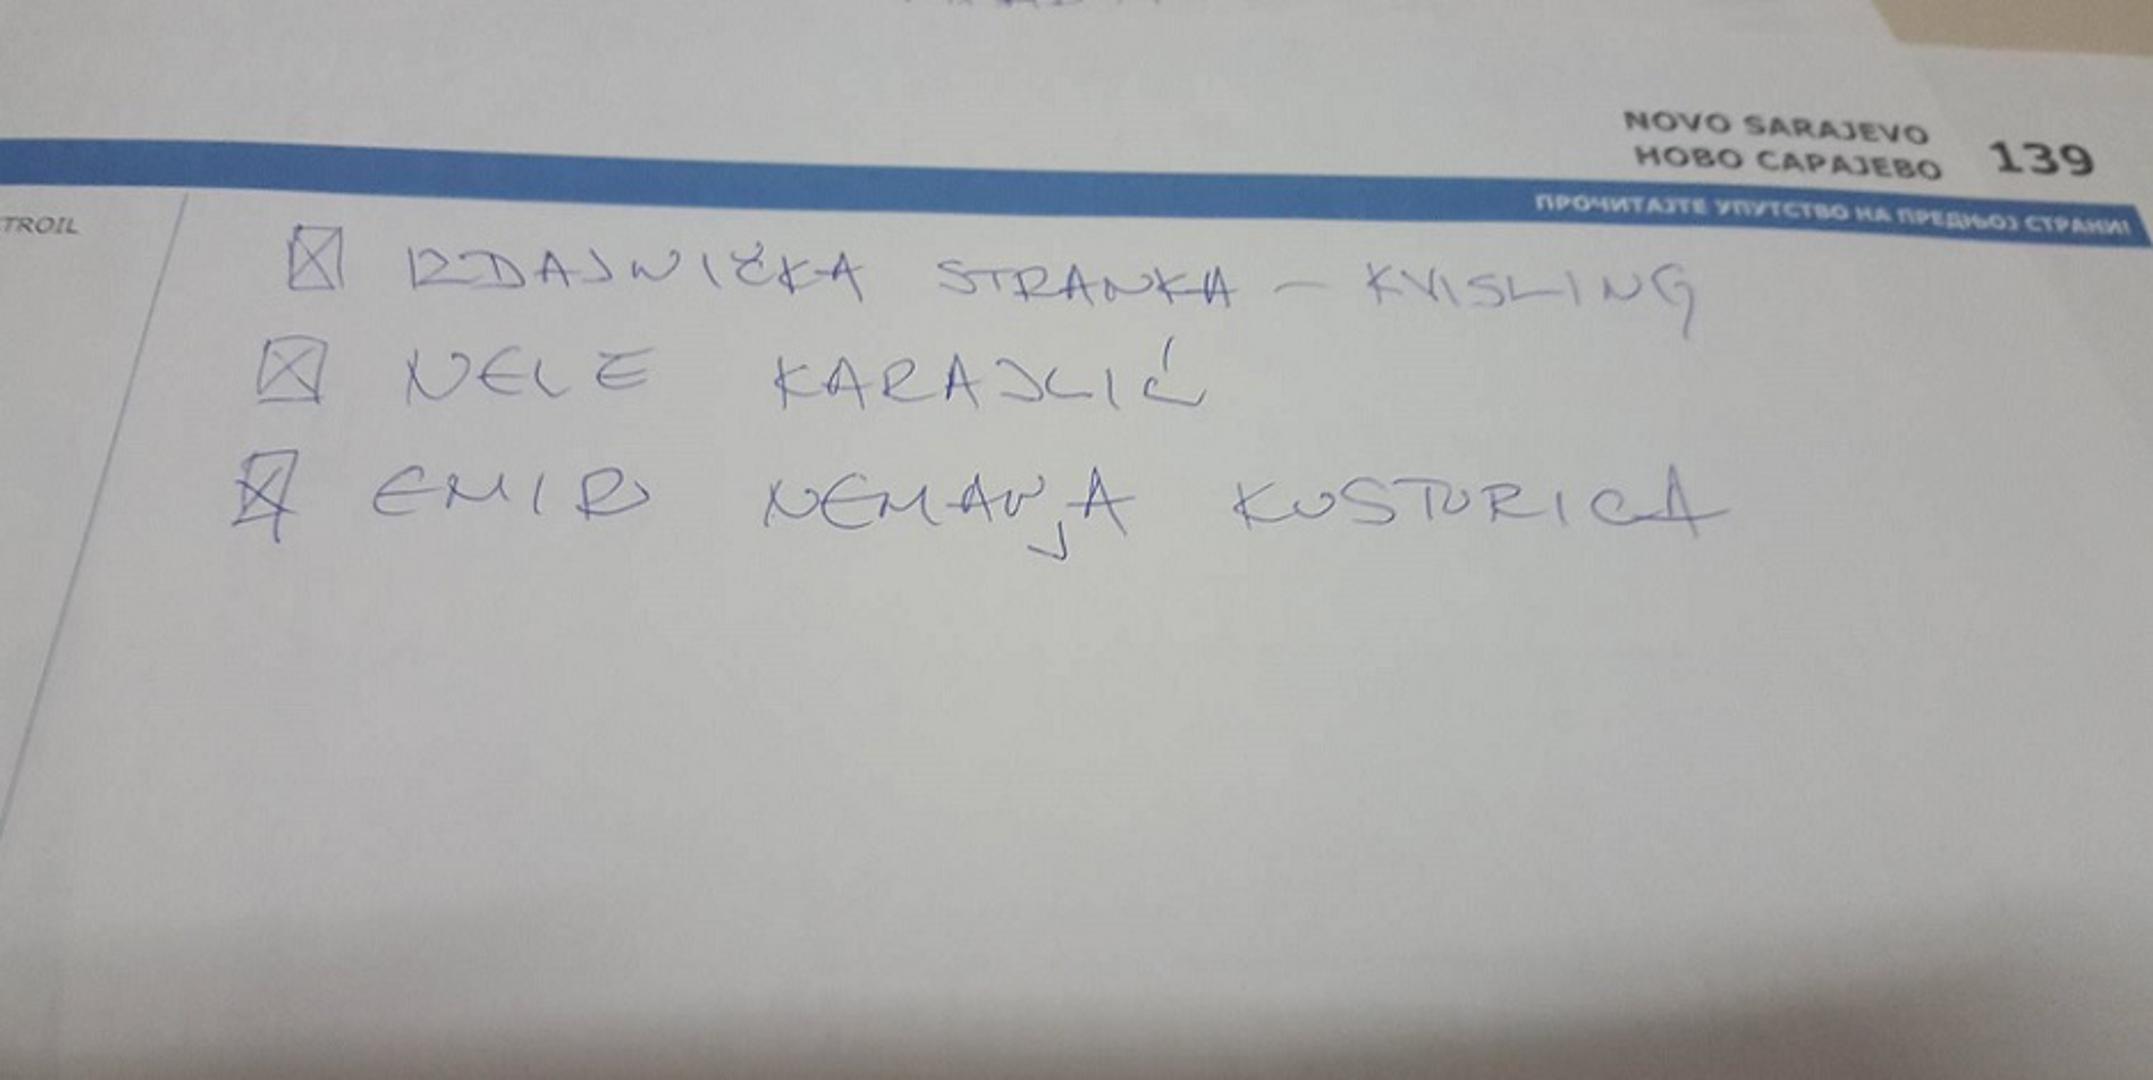 NOVO SARAJEVO
НОВО САРАЈЕВО 139
ПРОЧИТАЈТЕ УПУТСТВО НА ПРЕДЊОЈ СТРАНИ!
TROIL
IZDAJNIČKA STRANKA – KVISLING
NELE KARAJLIĆ
EMIR NEMANJA KUSTURICA